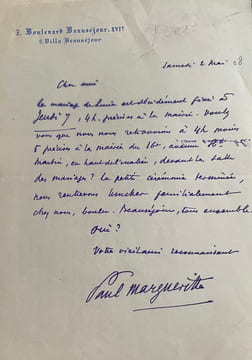 7, Boulevard Beauséjour, XVIᵉ
2, Villa Beauséjour
Samedi 2 mai 08
Cher ami
Le mariage de est décidément fixé à
Jeudi 7, 4h. précises à la mairie. Voulez
vous que nous nous retrouvions à 4h moins
5 précises à la mairie du 16e, avenue Henri
Martin, en haut de l'escalier, devant la salle
des mariages? La petite cérémonie terminée,
nous rentrerons luncher familialement
chez nous, boulev. Beauséjour, tous ensemble.
Oui?
Votre vieil ami reconnaissant
Paul Margueritte